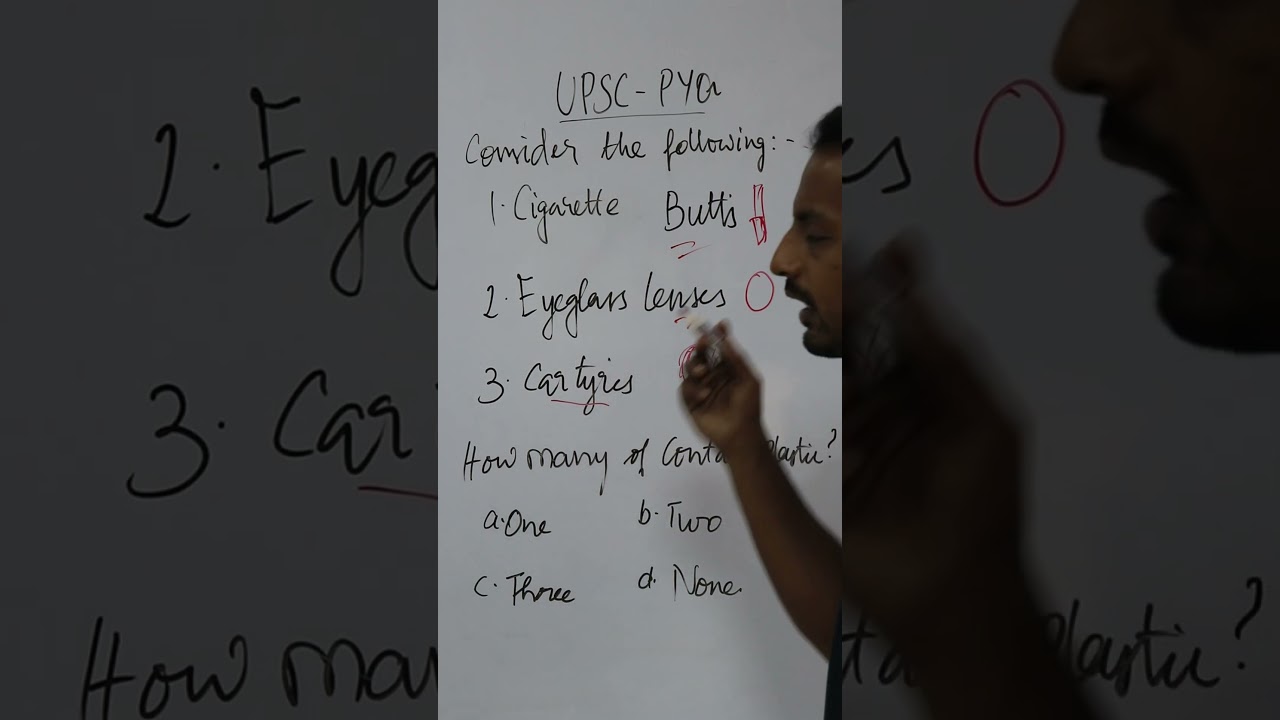 UPSC-PYQ
Consider the following:-
1. Cigarette Butts
2. Eyeglass Lenses
3. Car tyres
How many of Conta Plastic?
a. One b. Two
c. Three d. None.